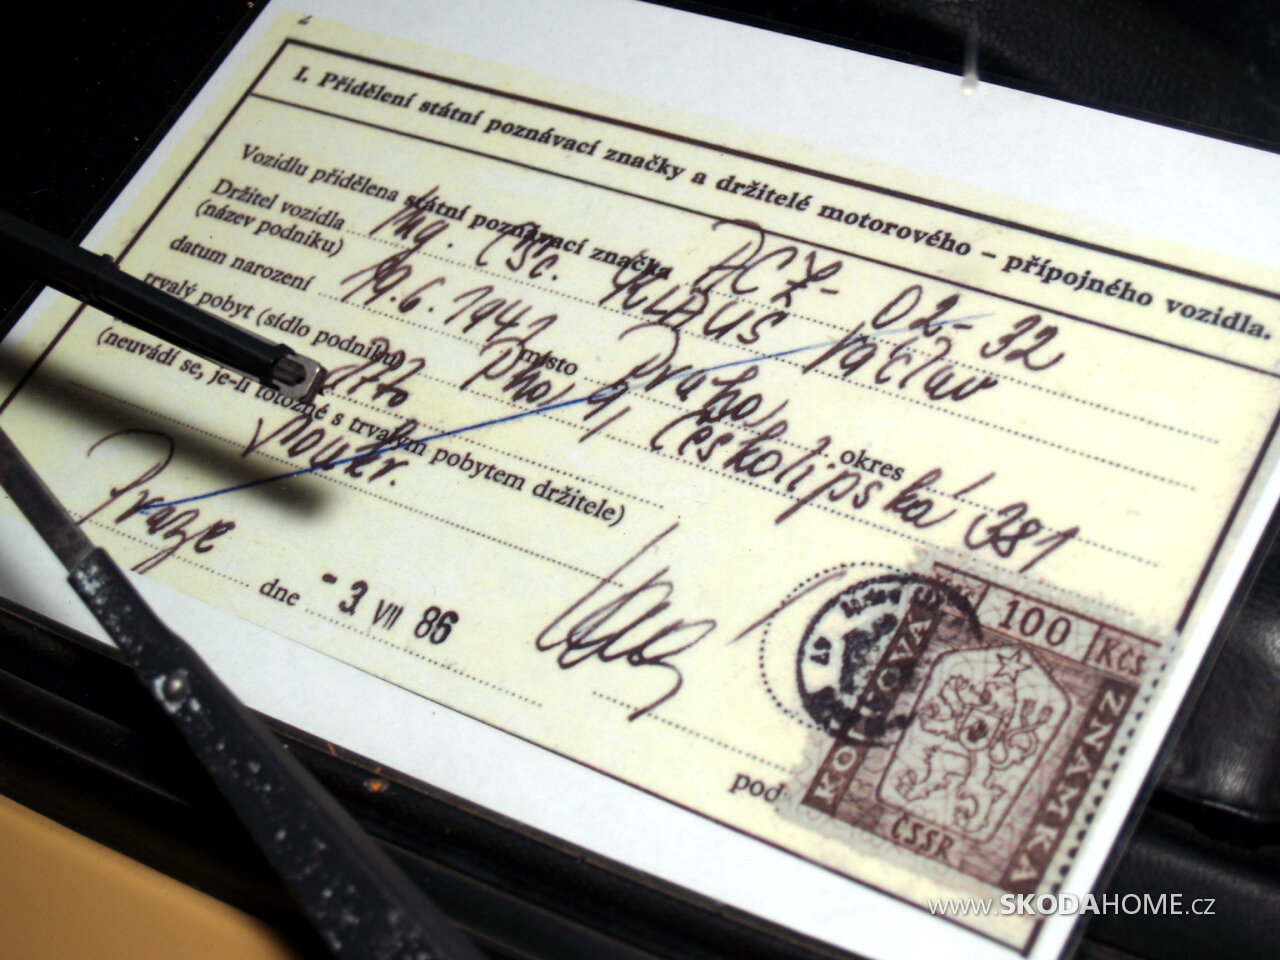 I. Přidělení státní poznávací značky a držitelé motorového – přípojného vozidla.
Vozidlu přidělena státní poznávací značka ACŽ-02-32
Držitel vozidla Ing. CSc. KLAUS Václav
(název podniku)
datum narození 19.6.1941 místo Praha okres
trvalý pobyt (sídlo podniku) Pha 9, Českolipská 381
(neuvádí se, je-li totožné s trvalým pobytem držitele)
soukr.
Praze dne -3. VII 86
pod
100 Kčs
KOLKOVÁ ZNÁMKA
ČSSR
www.SKODAHOME.cz